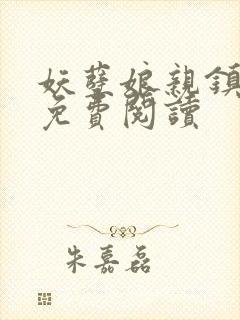 妖孽娘親鎮
免費閱讀
朱嘉磊